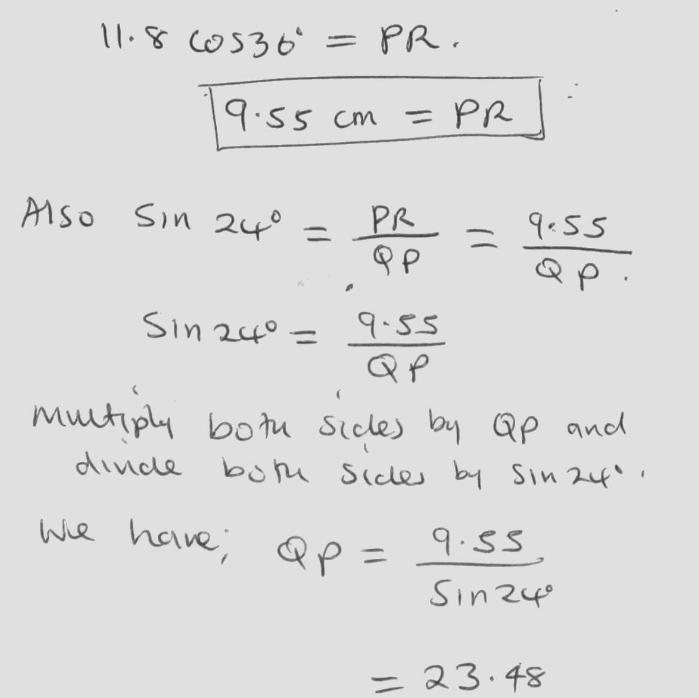 11.8 cos36° = PR.
9.55 cm = PR
Also Sin 24° = PR/QP = 9.55/QP.
Sin 24° = 9.55/QP
Multiply both sides by QP and
divide both sides by Sin 24°.
We have; QP = 9.55/Sin 24°
= 23.48